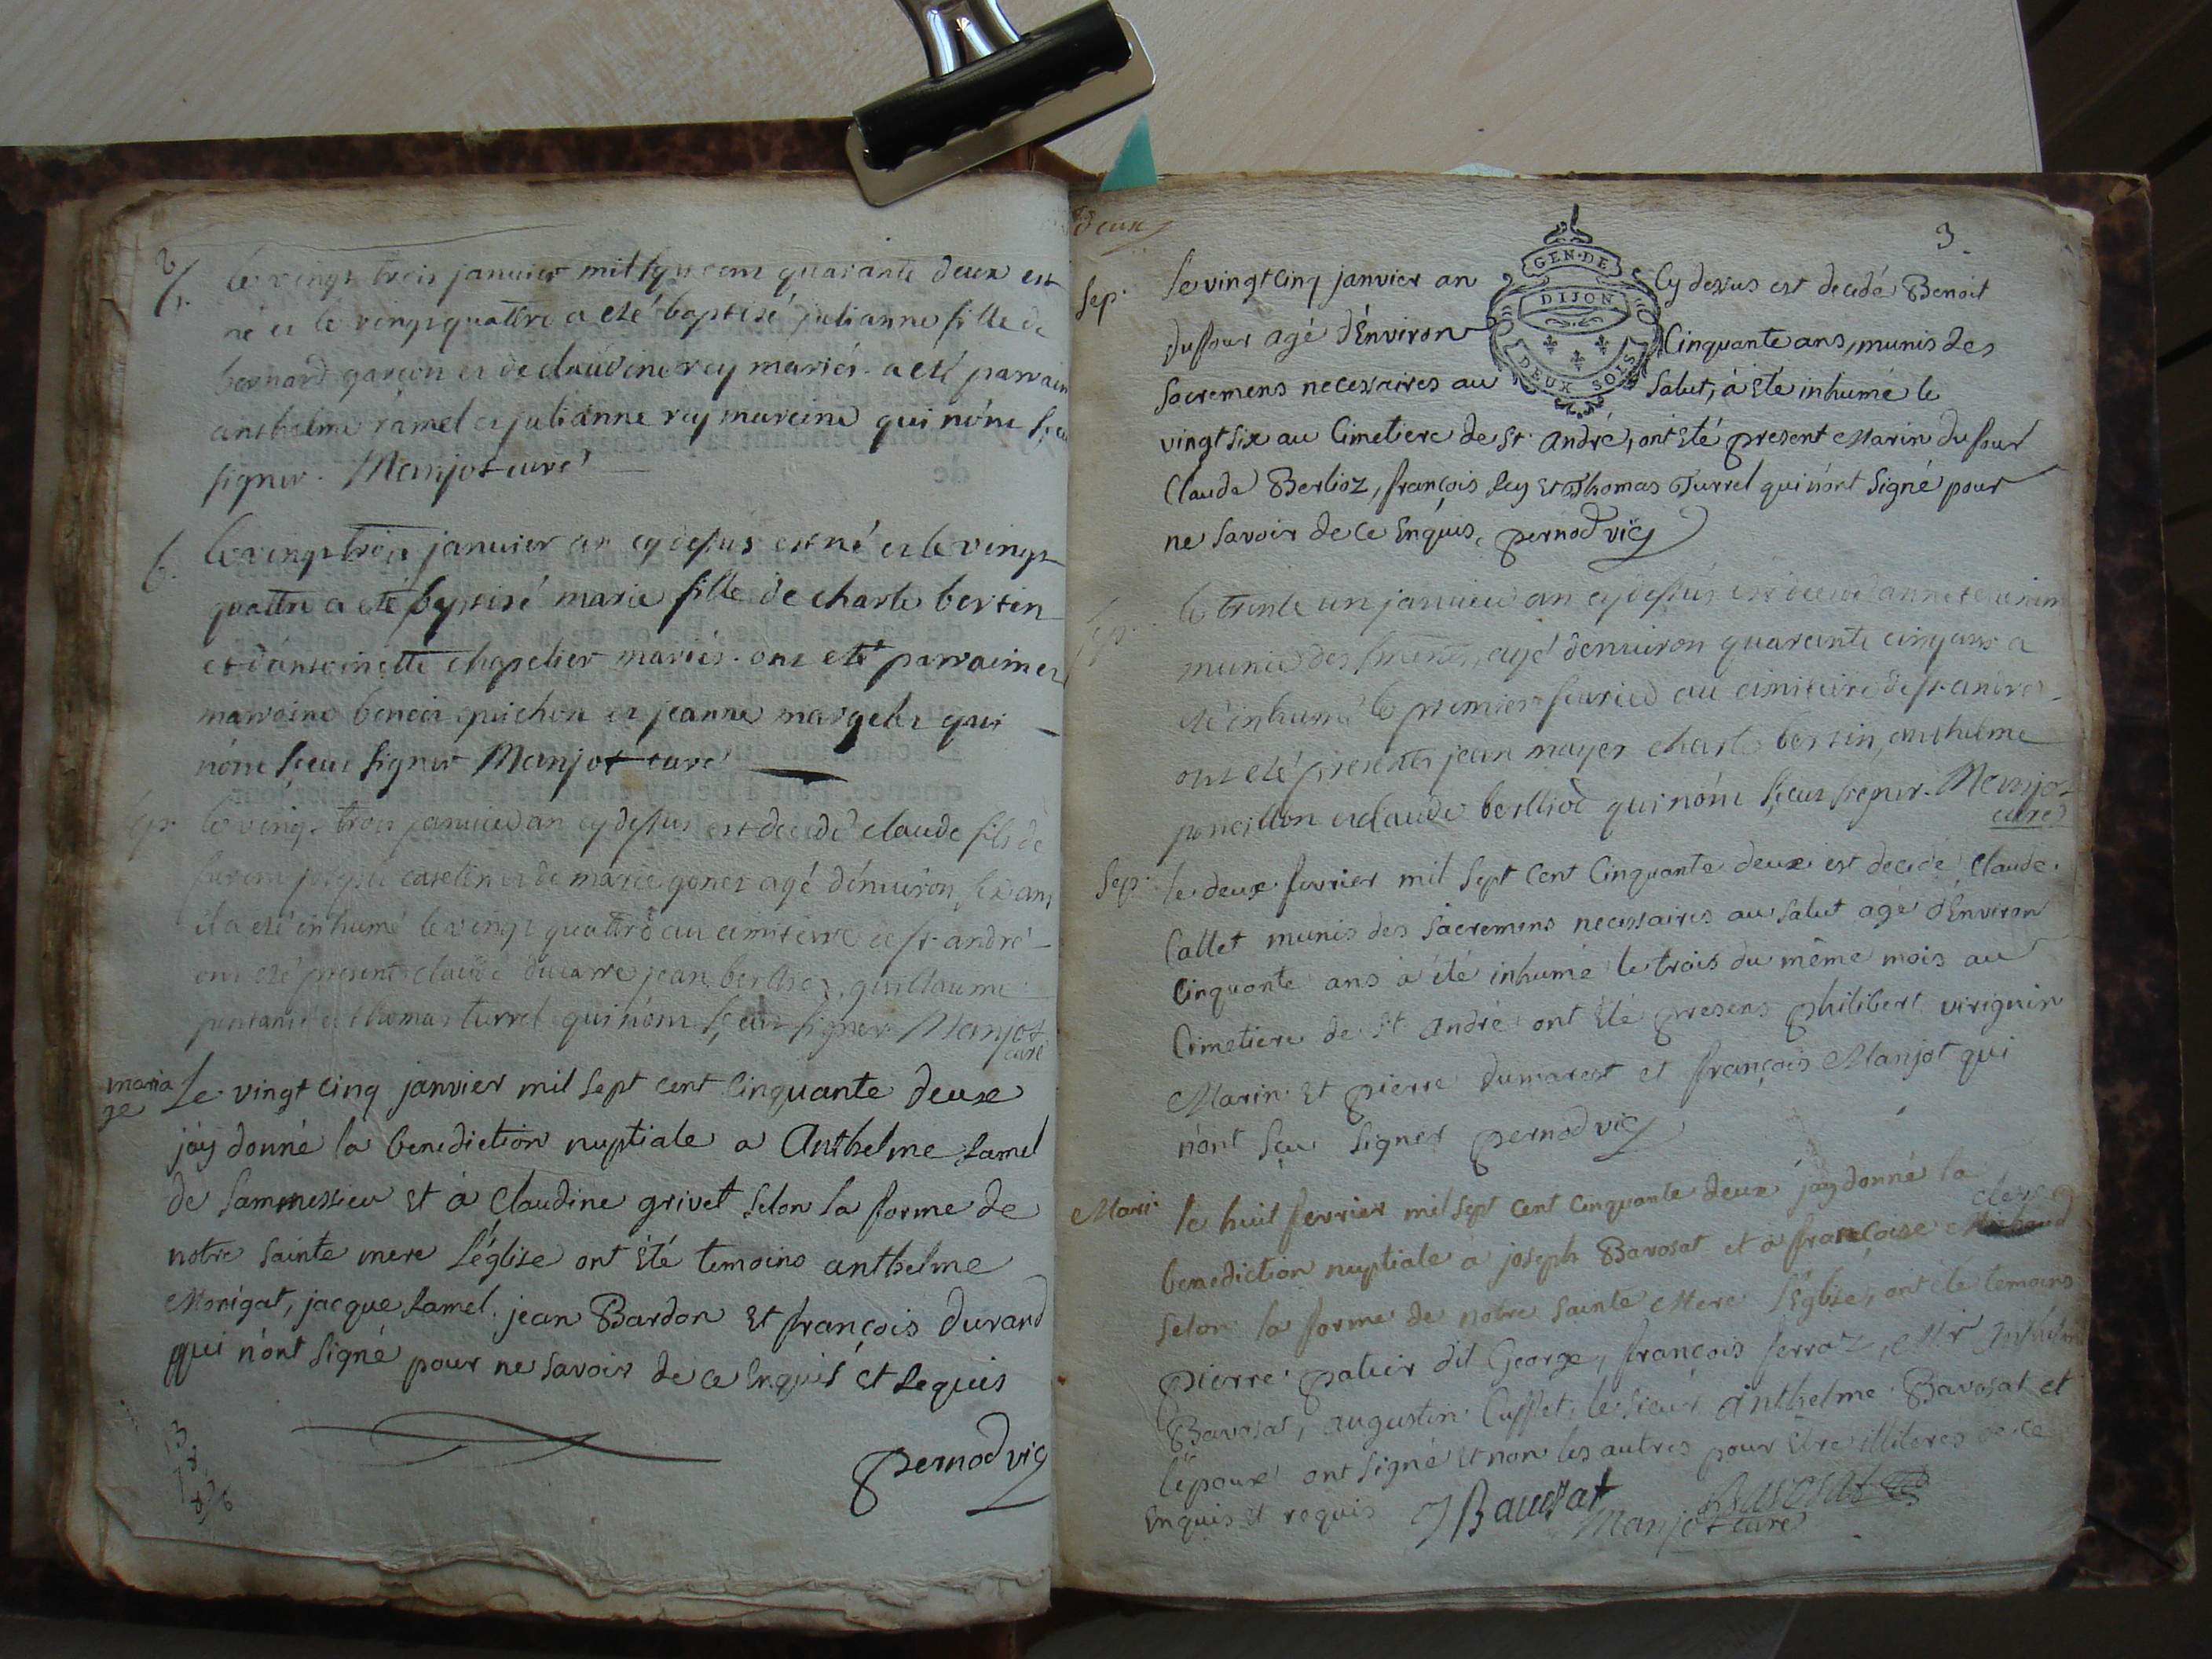 b/.
le vingt trois janvier mil sept cent quarante deux est
né et le vingt quattre a eté baptisé julianne fille de
bernard garçon et de claudine rey mariés. a eté parrain
anthelme ramel et julianne rey mareine qui nónt sceu
signer. Manjot curé
b.
le vingt trois janvier an cy dessus est né et le vingt
quattre a eté baptisé marie fille de charle bertin
et dantoinette chapelier mariés. ont eté parrain et
marraine benoit guichon et jeanne margelet qui
nónt sceut signer Manjot curé
sep.
le vingt trois janvier an cy dessus est decedé claude fils de
joseph et de marie gonet agé dénviron six ans
il a eté inhumé le vingt quattre au cimitiere de st. andré
ont eté present claude ducarre jean berlioz, guillaume
et thomas turrel qui nónt sceut signer Manjot
curé
maria
ge
Le vingt cinq janvier mil sept cent cinquante deux
j'ay donné la benediction nuptiale a Anthelme Lamel
de Sammessieu et à Claudine grivet selon la forme de
notre sainte mere L'église ont été temoins anthelme
Morigat, jacque Lamel. jean Bardon et françois durand
qui n'ont signé pour ne savoir de ce Enquis et Requis
pernod vic
deux
3
GEN. DE
DIJON
DEUX SOLS
Sep.
le vingt cinq janvier an cy dessus est decedé Benoit
duffour agé d'Environ Cinquante ans, munis des
sacremens necessaires au salut, à Eté inhumé le
vingt six au Cimetiere de St. André, ont Eté present Marin dufour
Claude Berlioz, françois Rey et Thomas Turrel qui n'ont signé pour
ne savoir de ce Enquis, pernod vic
sep.
le trente un janvier an cy dessus est decedé anne
munie des agé denviron quarante cinq ans a
eté inhumé le premier fevrier au cimitiere de st. andré.
ont eté presentes jean mayer charle bertin, anthelme
poncillon et claude berllioz qui nónt sceut signer. Manjot
curé
Sep.
le deux fevrier mil sept cent Cinquante deux est decede Claude
Callet munis des sacremens necessaires au salut agé d'Environ
Cinquante ans a été inhumé le trois du même mois au
Cimetiere de St André ont Eté presens philibert viriguin
Marin et pierre dumarest et françois Manjot qui
n'ont sçu signer pernod vic
Mari.
le huit fevrier mil sept cent cinquante deux j'ay donné la
benediction nuptiale à joseph Bavosat et à françoise clerc
selon la forme de notre sainte Mere l'Eglise, ont été temoins
pierre patuir dit George, françois ferraz, Mr
Bavosat, augustin Cuffet, le sieur Anthelme Bavosat et
l'époux ont signé et non les autres pour Etre illiteres de ce
Enquis et requis J Bavosat Bavosat
Manjot curé